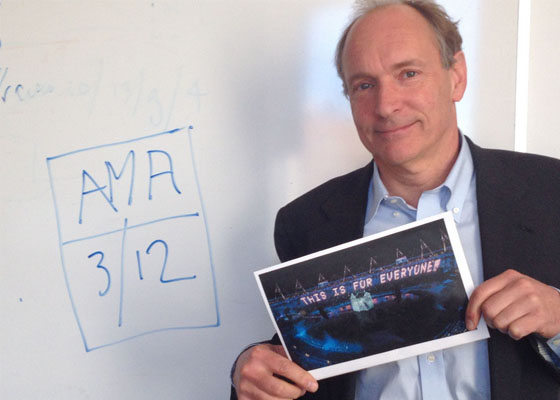 AMA
3/12
THIS IS FOR EVERYONE